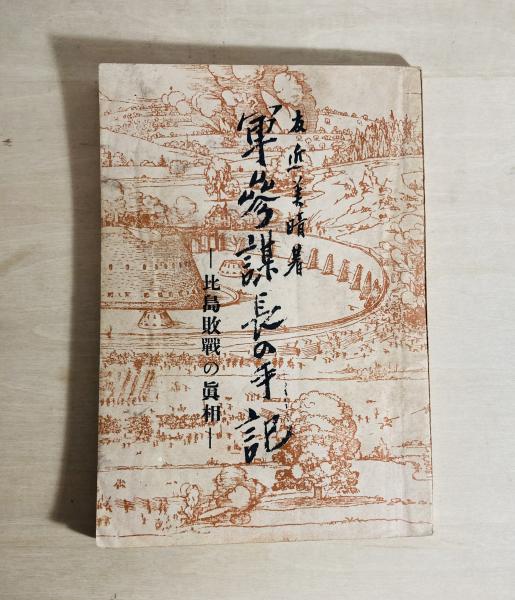 友近美晴著
軍參謀長の手記
―比島敗戰の眞相―